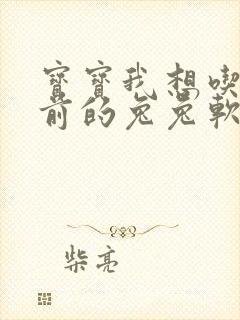 寶寶我想喫
前的兔兔軟
柴亮